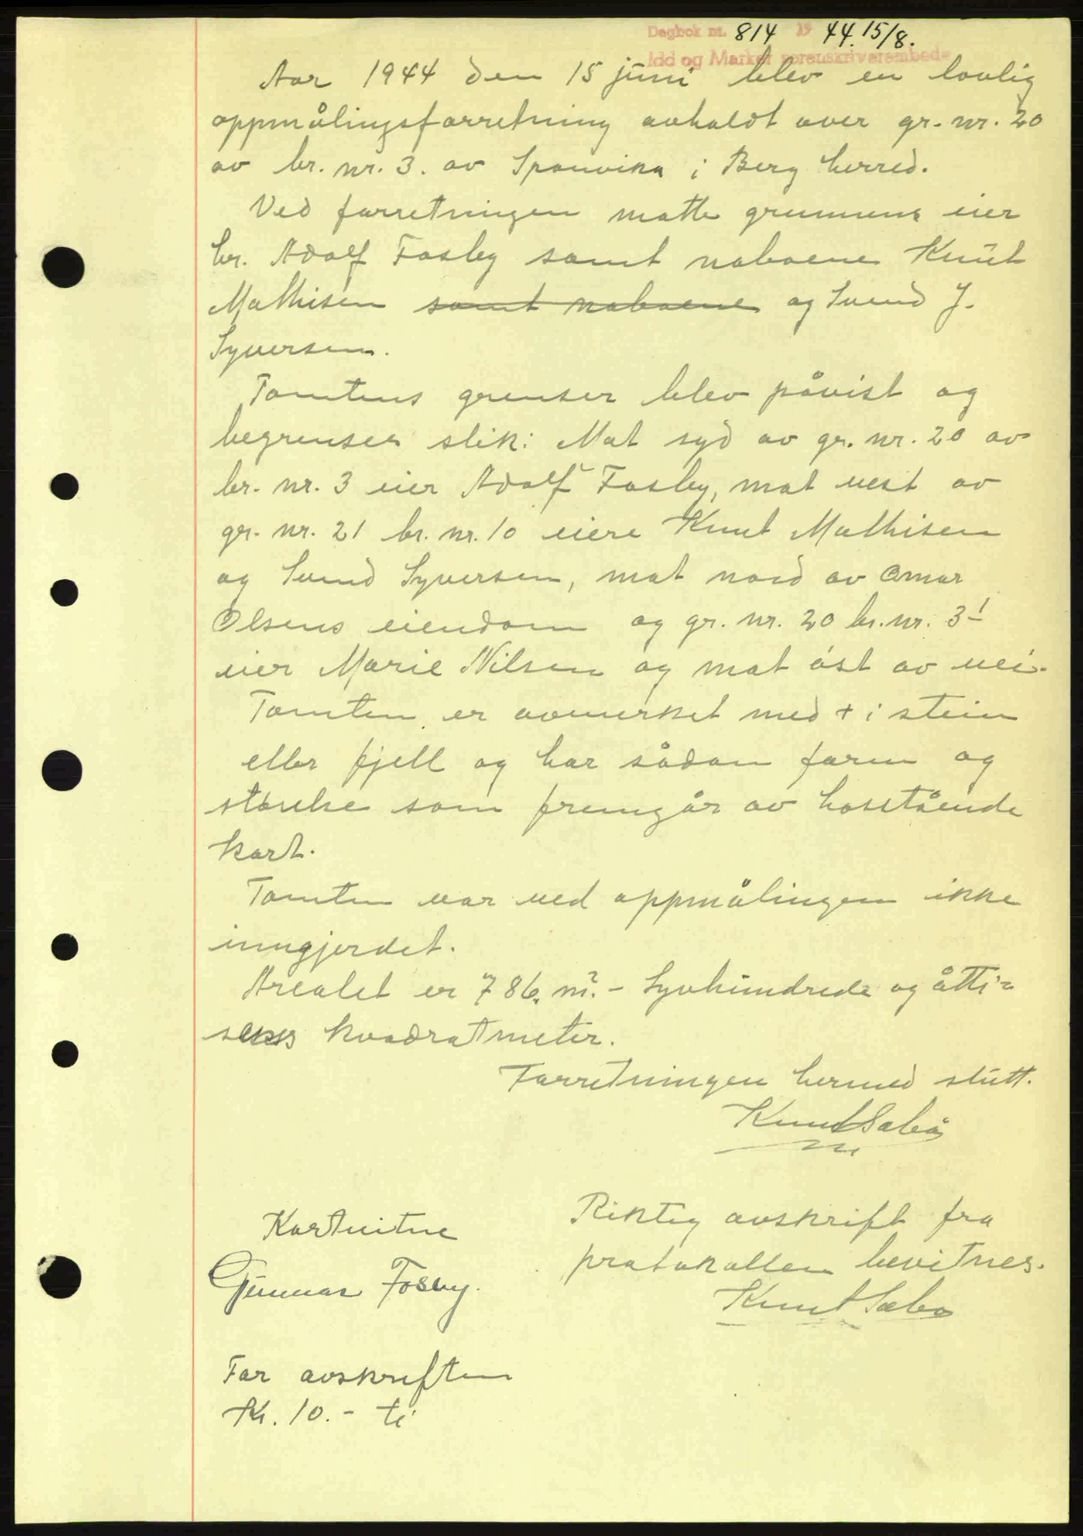 Dagbok nr. 814 19 44. 15/8.
Idd og Marker sorenskriverembede
Aar 1944 den 15 juni blev en lovlig
oppmålingsforretning avholdt over gr. nr. 20
av br. nr. 3. av Sponvika i Berg herred.
Ved forretningen møtte grunnens eier
hr. Adolf Fosby samt naboene Knut
Mathisen samt naboene og Svend J.
Syversen.
Tomtens grenser blev påvist og
begrenses slik: Mot syd av gr. nr. 20 av
br. nr. 3 eier Adolf Fosby, mot vest av
gr. nr. 21 br. nr. 10 eiere Knut Mathisen
og Svend Syversen, mot nord av Omar
Olsens eiendom og gr. nr. 20 br. nr. 31
eier Marie Nilsen og mot øst av vei.
Tomten er avmerket med + i stein
eller fjell og har sådan form og
størelse som fremgår av hosstående
kart.
Tomten var ved oppmålingen ikke
inngjerdet.
Arealet er 786. m². - Syvhundrede og åtti-
seks kvadratmeter.
Forretningen hermed slutt.
Knut Sæbø
Kartvitne
Gunnar Fosby.
Riktig avskrift fra
protokollen bevitnes.
Knut Sæbø
For avskriften
Kr. 10. - ti